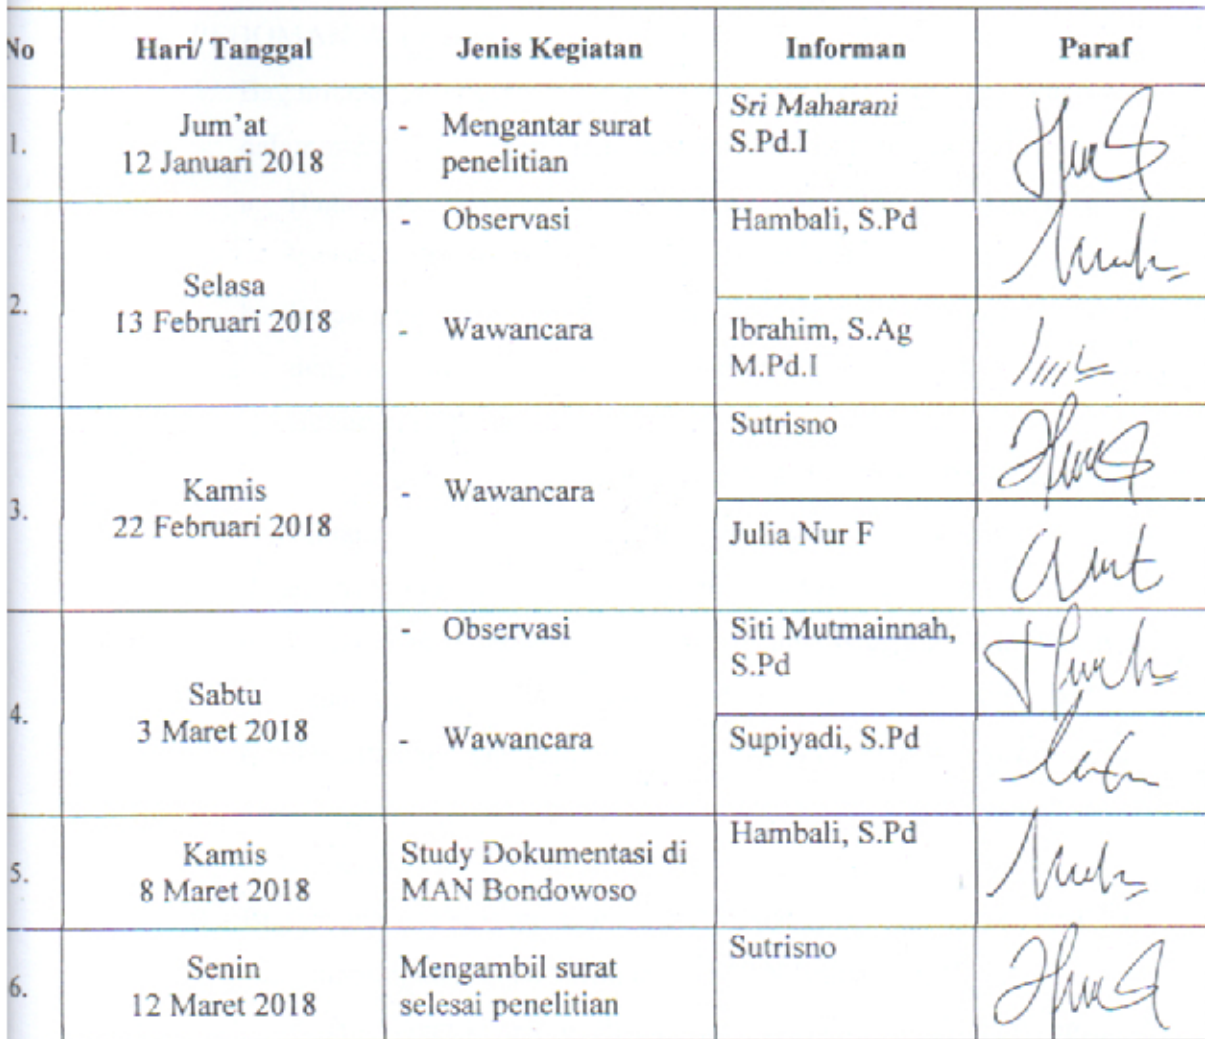 No Hari/ Tanggal Jenis Kegiatan Informan Paraf
1. Jum'at
12 Januari 2018
- Mengantar surat
penelitian
Sri Maharani
S.Pd.I
2. Selasa
13 Februari 2018
- Observasi
- Wawancara
Hambali, S.Pd
Ibrahim, S.Ag
M.Pd.I
3. Kamis
22 Februari 2018
- Wawancara
Sutrisno
Julia Nur F
4. Sabtu
3 Maret 2018
- Observasi
- Wawancara
Siti Mutmainnah,
S.Pd
Supiyadi, S.Pd
5. Kamis
8 Maret 2018
Study Dokumentasi di
MAN Bondowoso
Hambali, S.Pd
6. Senin
12 Maret 2018
Mengambil surat
selesai penelitian
Sutrisno